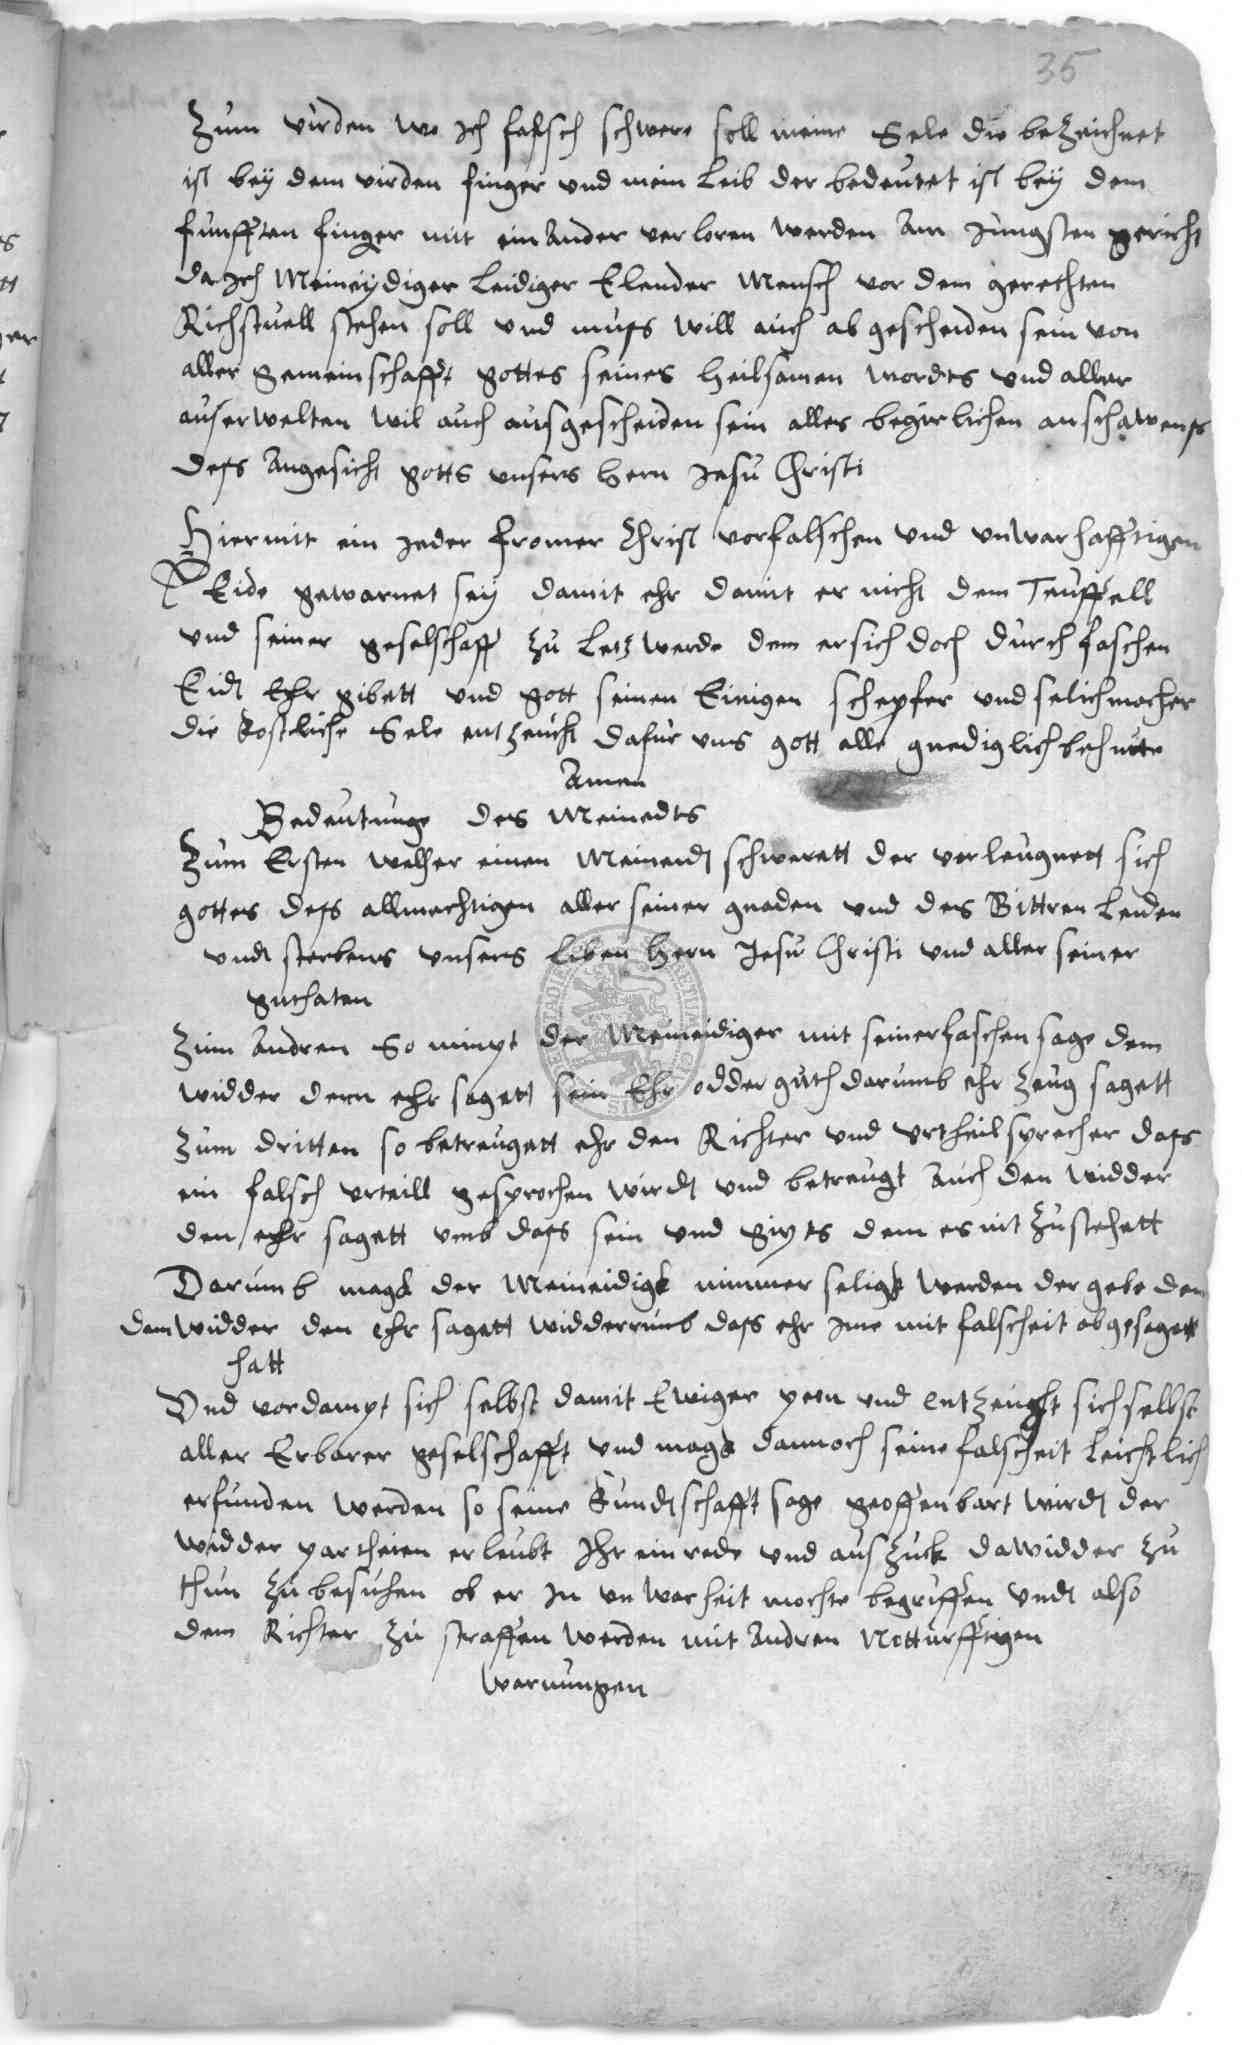 35
Zum virden wo Ich falsch schwere soll meine Sele die bezeichnet
ist bey dem virden finger und mein Leib der bedeutet ist bey dem
funfften finger mit ein Ander verloren werden Am Jungsten gericht
da Ich Meineydiger Leidiger Elender Mensch vor dem gerechten
Richstuell stehen soll und muss will auch abgescheiden sein von
aller gemeinschafft gottes seines heilsamen wordes und aller
auserwelten wil auch ausgescheiden sein alles begirlichen anschawenss
dess Angesicht gotts unsers hern Jesu Christi
Hiermit ein Jeder fromer Christ vor falschen und unwarhafftigen
Eide gewarnet sey damit ehr damit er nicht dem Teuffell
und seiner geselschaff zu Letz werde dem er sich doch durch faschen
Eidt Ehr gibett und gott seinen Einigen schepfer und selichmacher
die kostliche Sele entzeucht dafur uns gott alle gnediglich behutte
Amen
Bedeutunge des Meinedts
Zum Ersten welher einen Meineidt schwerett der verleugnett sich
gottes dess allmechtigen aller seiner gnaden und des Bittren Leiden
undt sterbens unsers liben hern Jesu Christi und aller seiner
guthaten
Zum Andren So nimpt der Meineidiger mit seiner faschen sage dem
widder dem ehr sagett sein Ehr odder guth darumb ehr zeug sagett
Zum dritten so betreugett ehr den Richter und Urtheilsprecher dass
ein falsch urteill gesprochen wirdt und betreugt Auch den widder
den ehr sagett umb dass sein und gipts dem es nit zustehett
Darumb magk der Meineidigk nimmer seligk werden der gebe den
dem widder den ehr sagett widderrumb dass ehr Ime mit falscheit abgesagett
hatt
Und vordampt sich selbst damit Ewiger pein und entzeucht sich selbst
aller Erbarer geselschafft und magk dannoch seine falscheit Leichtlich
erfunden werden so seine kundtschafft sage geoffenbart wirdt der
widder partheien erleubt Ihr einrede und auszuck dawidder zu
thun zu besuhen ob er In unwarheit mochte begriffen undt also
dem Richter zu straffen werden mit Andren Notturfftigen
warnungen